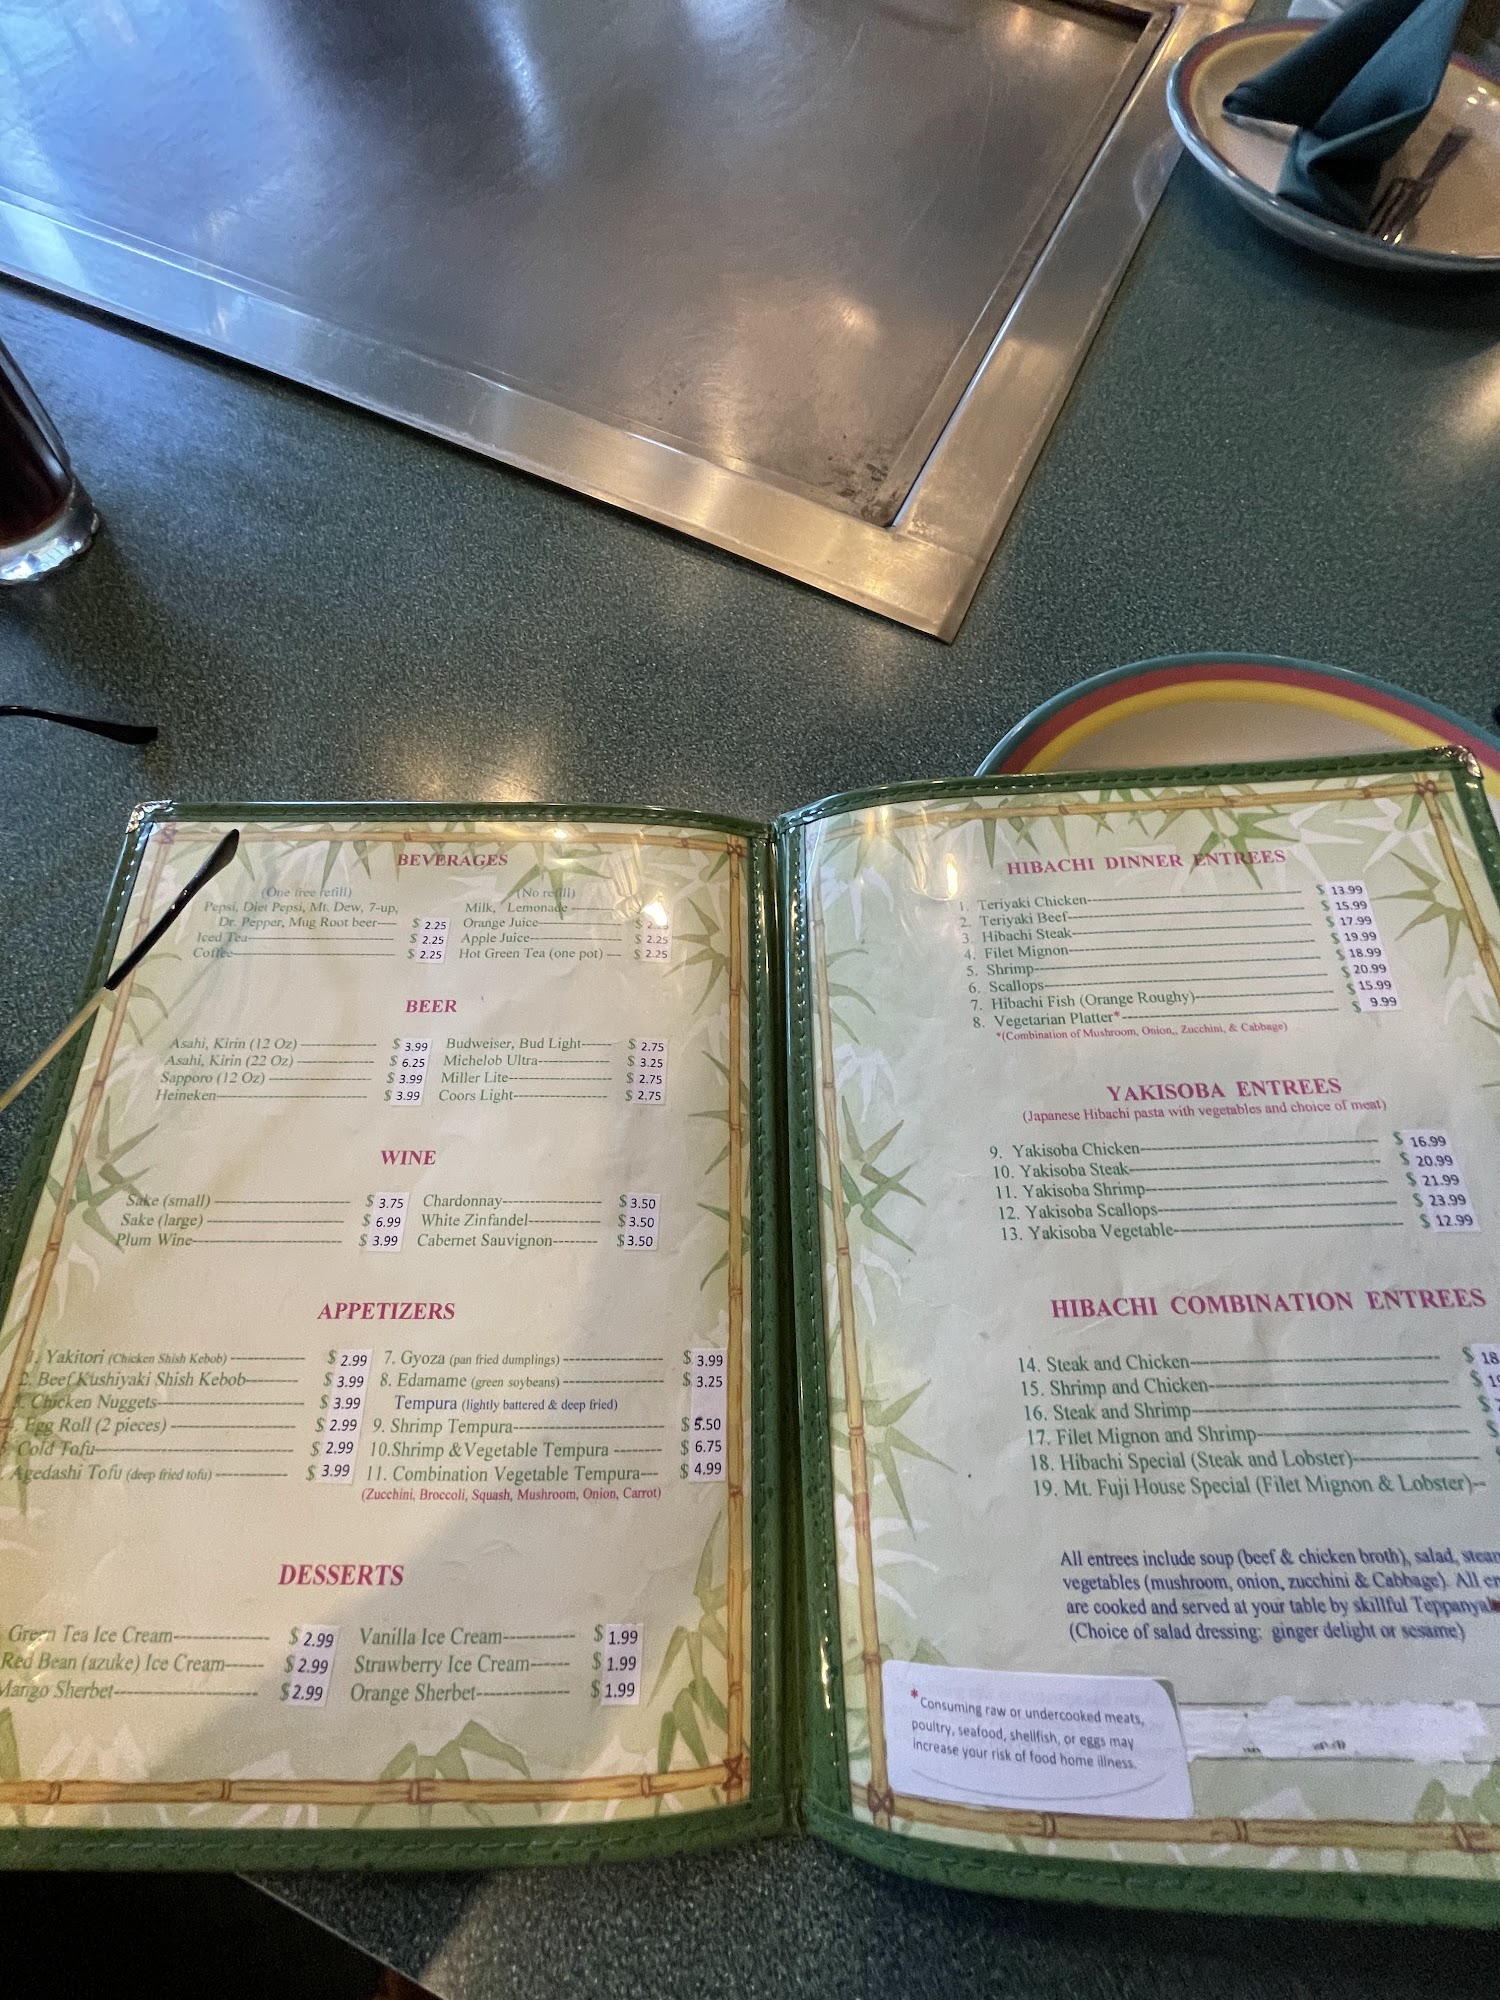 BEVERAGES
(One free refill)
Pepsi, Diet Pepsi, Mt. Dew, 7-up,
Dr. Pepper, Mug Root beer---- $ 2.25
Iced Tea---- $ 2.25
Coffee---- $ 2.25
(No refill)
Milk, Lemonade ----
Orange Juice---- $
Apple Juice---- $ 2.25
Hot Green Tea (one pot) ---- $ 2.25
BEER
Asahi, Kirin (12 Oz) ---- $ 3.99
Asahi, Kirin (22 Oz) ---- $ 6.25
Sapporo (12 Oz) ---- $ 3.99
Heineken---- $ 3.99
Budweiser, Bud Light---- $ 2.75
Michelob Ultra---- $ 3.25
Miller Lite---- $ 2.75
Coors Light---- $ 2.75
WINE
Sake (small) ---- $ 3.75
Sake (large) ---- $ 6.99
Plum Wine---- $ 3.99
Chardonnay---- $ 3.50
White Zinfandel---- $ 3.50
Cabernet Sauvignon---- $ 3.50
APPETIZERS
1. Yakitori (Chicken Shish Kebob) ---- $ 2.99
2. Beef Kushiyaki Shish Kebob---- $ 3.99
Chicken Nuggets---- $ 3.99
Egg Roll (2 pieces) ---- $ 2.99
Cold Tofu---- $ 2.99
Agedashi Tofu (deep fried tofu) ---- $ 3.99
7. Gyoza (pan fried dumplings) ---- $ 3.99
8. Edamame (green soybeans) ---- $ 3.25
Tempura (lightly battered & deep fried)
9. Shrimp Tempura---- $ 5.50
10.Shrimp & Vegetable Tempura ---- $ 6.75
11. Combination Vegetable Tempura---- $ 4.99
(Zucchini, Broccoli, Squash, Mushroom, Onion, Carrot)
DESSERTS
Green Tea Ice Cream---- $ 2.99
Red Bean (azuke) Ice Cream---- $ 2.99
Mango Sherbet---- $ 2.99
Vanilla Ice Cream---- $ 1.99
Strawberry Ice Cream---- $ 1.99
Orange Sherbet---- $ 1.99
HIBACHI DINNER ENTREES
1. Teriyaki Chicken---- $ 13.99
2. Teriyaki Beef---- $ 15.99
3. Hibachi Steak---- $ 17.99
4. Filet Mignon---- $ 19.99
5. Shrimp---- $ 18.99
6. Scallops---- $ 20.99
7. Hibachi Fish (Orange Roughy)---- $ 15.99
8. Vegetarian Platter*---- $ 9.99
*(Combination of Mushroom, Onion,, Zucchini, & Cabbage)
YAKISOBA ENTREES
(Japanese Hibachi pasta with vegetables and choice of meat)
9. Yakisoba Chicken---- $ 16.99
10. Yakisoba Steak---- $ 20.99
11. Yakisoba Shrimp---- $ 21.99
12. Yakisoba Scallops---- $ 23.99
13. Yakisoba Vegetable---- $ 12.99
HIBACHI COMBINATION ENTREES
14. Steak and Chicken---- $ 18
15. Shrimp and Chicken---- $
16. Steak and Shrimp---- $
17. Filet Mignon and Shrimp---- $
18. Hibachi Special (Steak and Lobster)----
19. Mt. Fuji House Special (Filet Mignon & Lobster)--
All entrees include soup (beef & chicken broth), salad,
vegetables (mushroom, onion, zucchini & Cabbage). All
are cooked and served at your table by skillful
(Choice of salad dressing: ginger delight or sesame)
*Consuming raw or undercooked meats,
poultry, seafood, shellfish, or eggs may
increase your risk of food home illness.